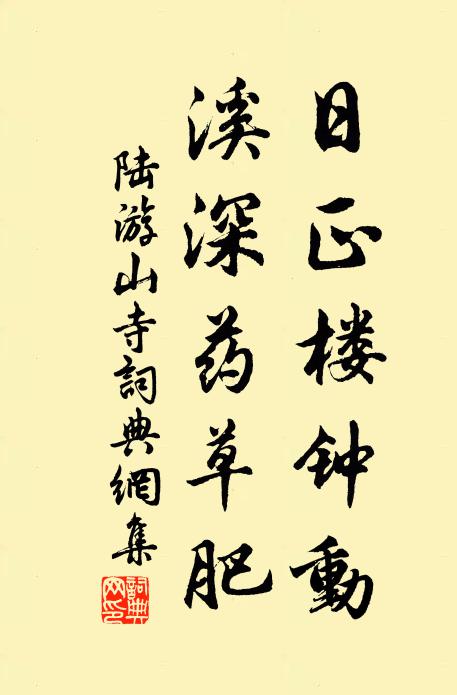 日正楼钟動
溪深药草肥
陆游山寺詞典網集
詞典網印